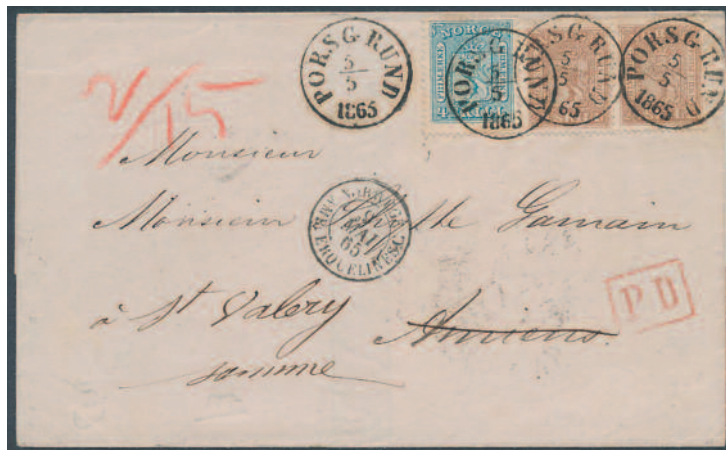 PORSGRUND
5/5
1865
NORGE
FRIMÆRKE
4 SKILL
PORSGRUND
5/5
1865
PORSGRUND
5/5
65
PORSGRUND
5/5
1865
2/15
Monsieur
Monsieur Gamain
9
MAI
65
ERQUELINES
PD
à St Valery Amiens
somme